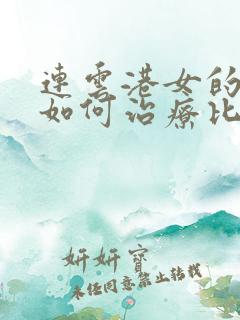 連雲港女的
如何治療比
妍妍寶
未經同意禁止轉載